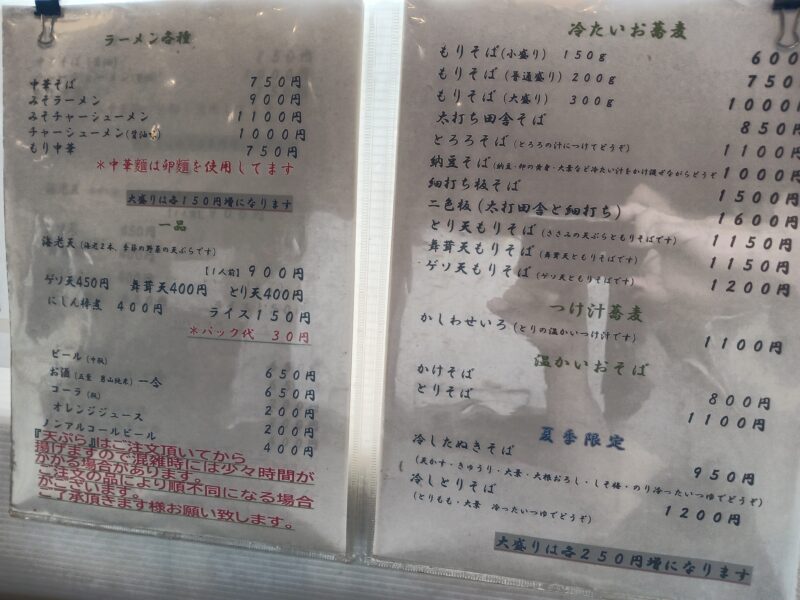 ラーメン各種
中華そば 750円
みそラーメン 900円
みそチャーシューメン 1100円
チャーシューメン(醤油味) 1000円
もり中華 750円
*中華麺は卵麺を使用してます
大盛りは各150円増になります
一品
海老天(海老2本、季節の野菜の天ぷらです)
【1人前】900円
ゲソ天450円 舞茸天400円 とり天400円
にしん棒煮 400円 ライス150円
*パック代 30円
ビール(中瓶) 650円
お酒(五重 男山純米)一合 650円
コーラ(瓶) 200円
オレンジジュース 200円
ノンアルコールビール 400円
『天ぷら』はご注文頂いてから
揚げますので混雑時には少々時間が
かかる場合があります。
ご注文の品により順不同になる場合
がございます。
ご了承頂きます様お願い致します。
冷たいお蕎麦
もりそば(小盛り) 150g 600
もりそば(普通盛り) 200g 750
もりそば(大盛り) 300g 1000
太打ち田舎そば 850円
とろろそば(とろろの汁につけてどうぞ) 1100円
納豆そば(納豆・卵の黄身・大葉など冷たい汁をかけ混ぜながらどうぞ 1000円
細打ち板そば 1500円
二色板(太打田舎と細打ち) 1600円
とり天もりそば(ささみの天ぷらともりそばです) 1150円
舞茸天もりそば(舞茸天ともりそばです) 1150円
ゲソ天もりそば(ゲソ天ともりそばです) 1200円
つけ汁蕎麦
かしわせいろ(とりの温かいつけ汁です) 1100円
温かいおそば
かけそば 800円
とりそば 1100円
夏季限定
冷したぬきそば 950円
(天かす・きゅうり・大葉・大根おろし・しそ梅・のり冷つたいつゆでどうぞ)
冷しとりそば 1200円
(とりもも・大葉 冷つたいつゆでどうぞ)
大盛りは各250円増になります